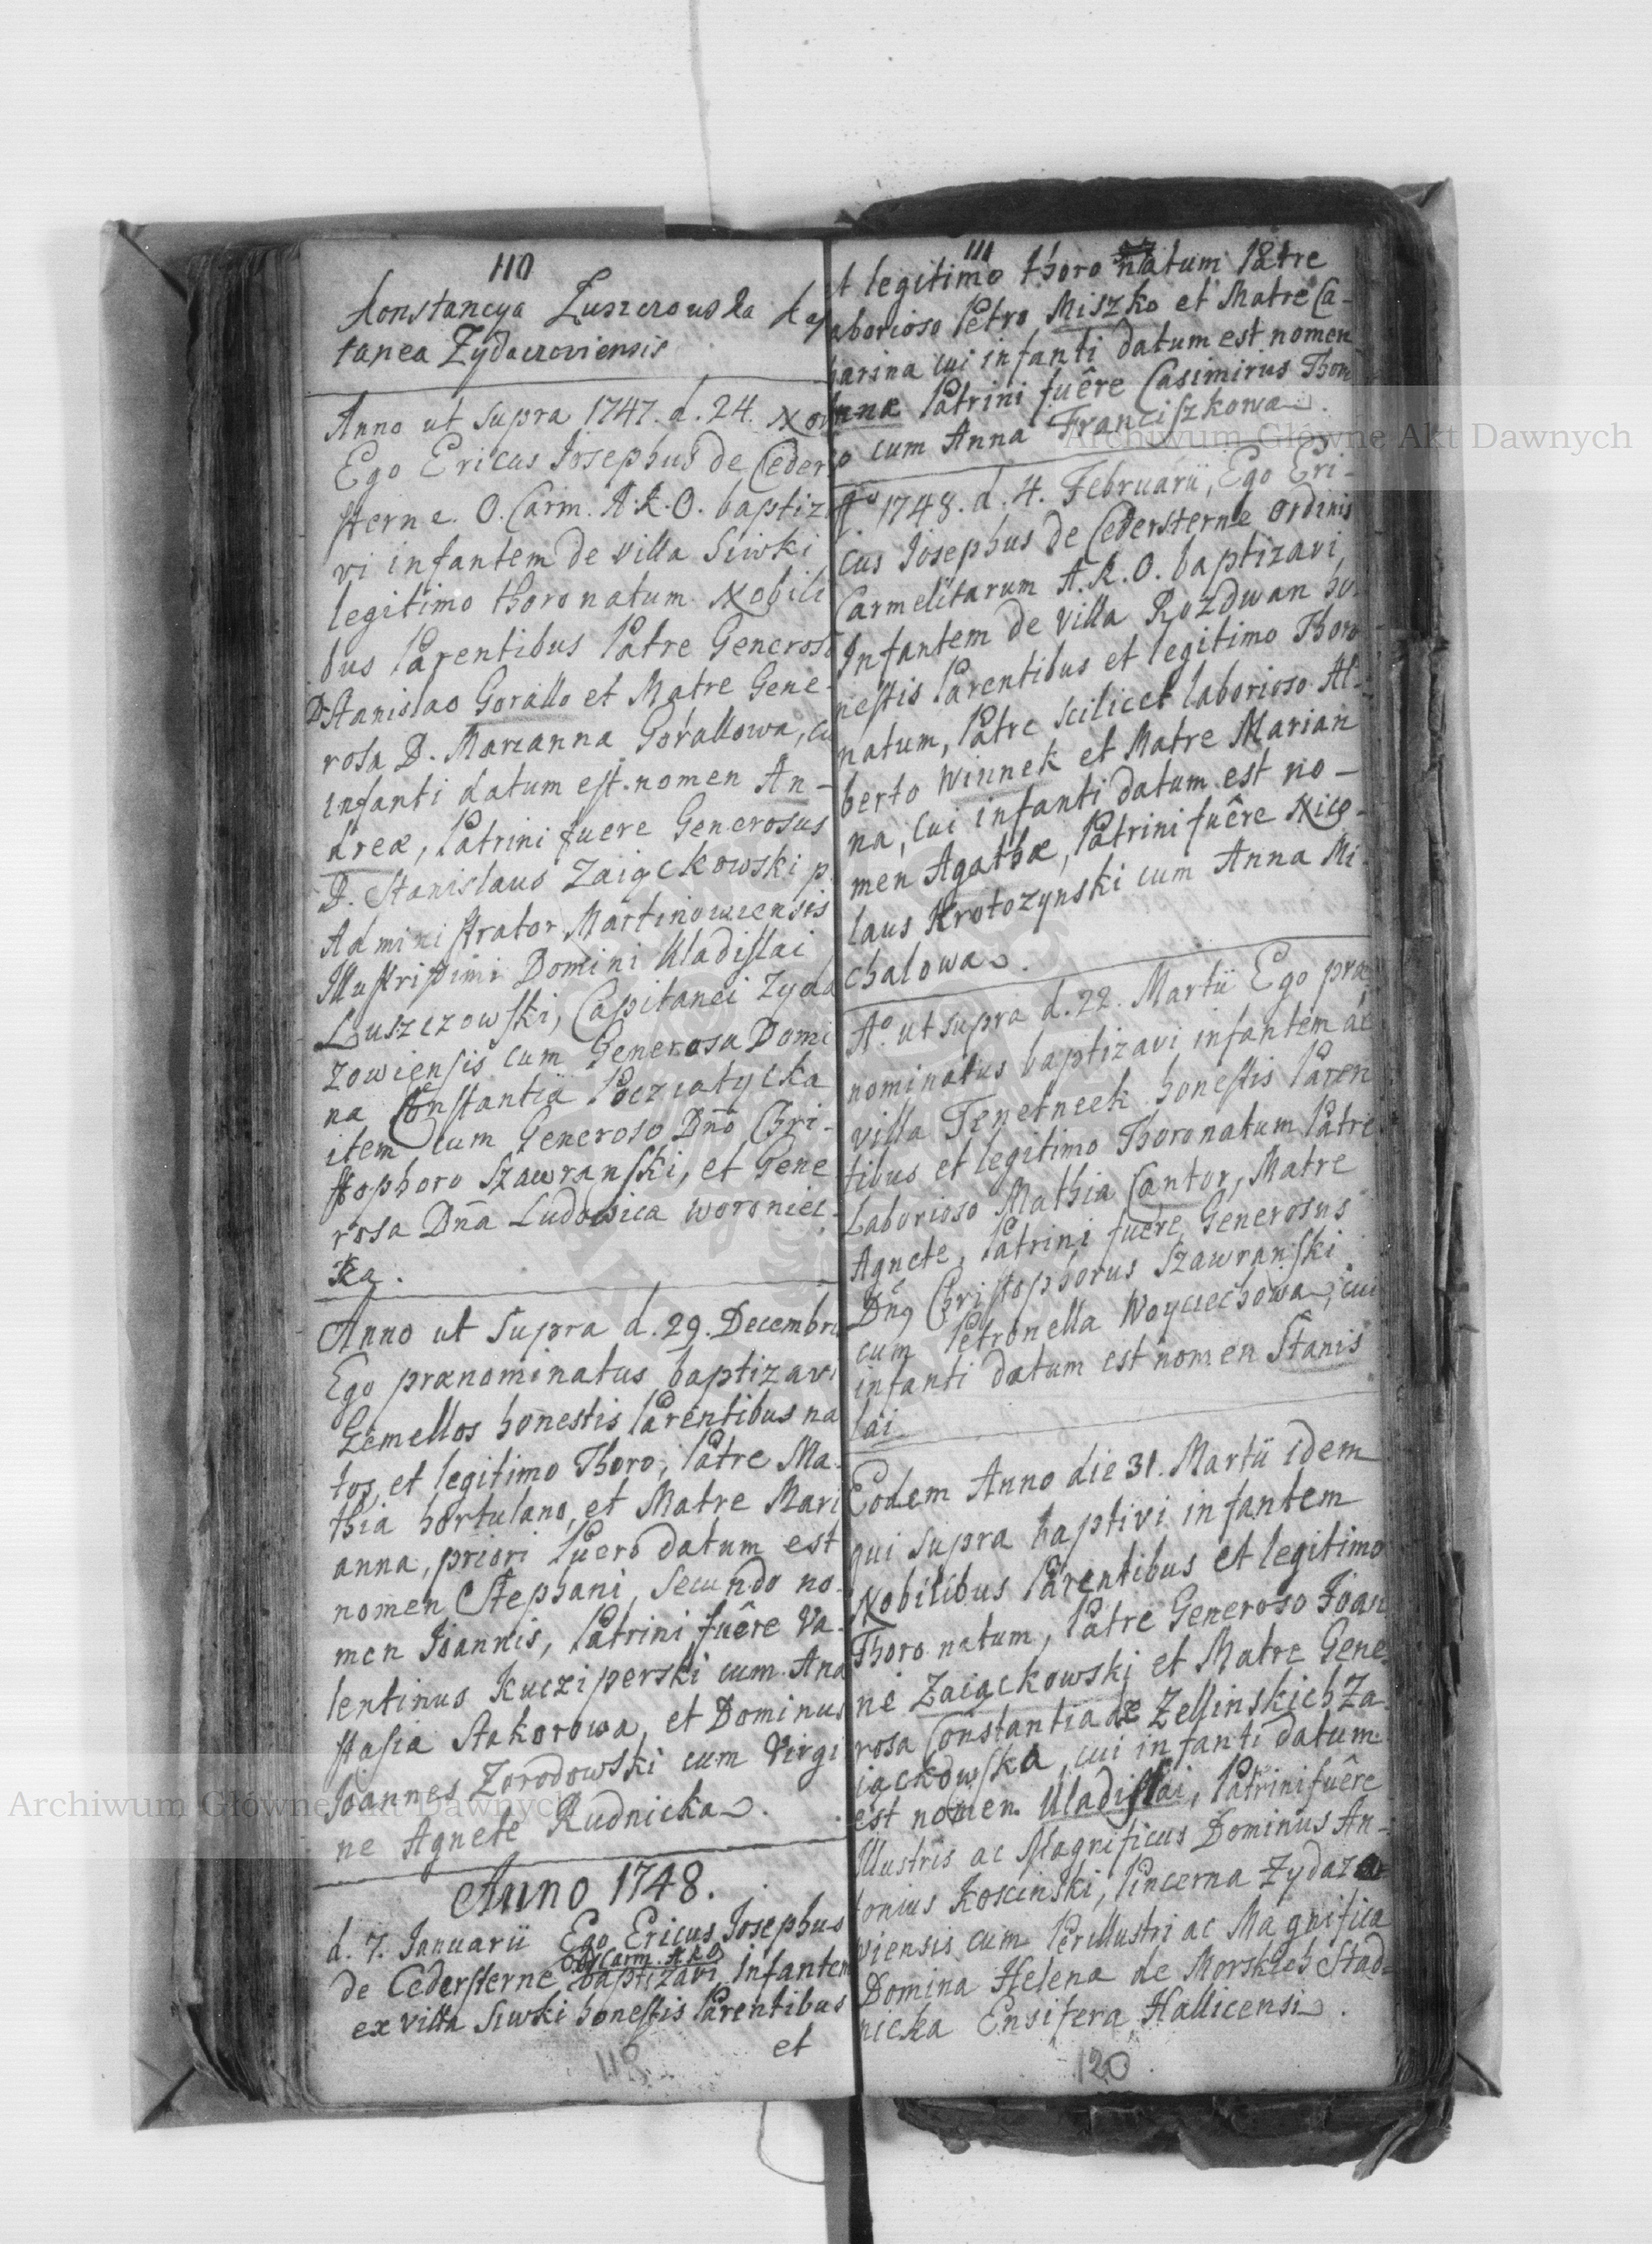 110
Konstancya Łuszczowska Kap
tanea Zydaczoviensis
Anno ut supra 1747. d. 24. Nov
Ego Ericus Josephus de Ceder
sterne. O. Carm. A.R.O. baptiz
vi infantem de villa Siwki
legitimo thoro natum Nobili
bus Parentibus Patre Generoso
D. Stanislao Gorallo et Matre Gene-
rosa D. Marianna Gorallowa, cu
infanti datum est nomen An-
dreæ, Patrini fuere Generosus
D. Stanislaus Zaiączkowski p.
Administrator Martinowiensis
Illustrissimi Domini Uladislai
Łuszczowski, Capitanei Zyda
zowiensis cum Generosa Domi
na Constantia Pocziatycka
item cum Generoso Dno Chri-
stophoro Szawranski, et Gene
rosa Dna Ludowica Woroniec-
ka.
Anno ut supra d. 29. Decembris
Ego prænominatus baptizavi
Gemellos honestis Parentibus na
tos, et legitimo Thoro, Patre Ma-
thia hortulano, et Matre Mari
anna, priori Puero datum est
nomen Stephani, secundo no-
men Joannis, Patrini fuêre Va-
lentinus Kucziperski cum Ana
stasia Stakorowa, et Dominus
Joannes Zorodowski cum Virgi
ne Agnete Rudnicka.
Anno 1748.
d. 7. Januarii Ego Ericus Josephus
Ord. Carm. A.R.O.
de Cedersterne baptizavi infantem
ex villa Siwki honestis Parentibus
et
118
111
t legitimo thoro natum Patre
aborioso Petro Miszko et Matre Ca-
harina cui infanti datum est nomen
Annæ Patrini fuêre Casimirus Thom
o cum Anna Franciszkowa.
Aº 1748. d. 4. Februarii, Ego Eri-
cus Josephus de Cedersterne Ordinis
Carmelitarum A.R.O. baptizavi
Infantem de villa Rozdwan ho-
nestis Parentibus et legitimo Thoro
natum, Patre scilicet laborioso Al-
berto Winnek et Matre Marian
na, cui infanti datum est no-
men Agathæ, Patrini fuêre Nico-
laus Krotozynski cum Anna Mi-
chalowa.
Aº. ut supra d. 22. Martii Ego præ
nominatus baptizavi infantem de
villa Tenetneek honestis Paren
tibus et legitimo Thoro natum Patre
Laborioso Mathia Cantor, Matre
Agnete, Patrini fuêre Generosus
Dnus Christophorus Szawranski
cum Petronella Woyciechowa, cui
infanti datum est nomen Stanis
lai
Eodem Anno die 31. Martii idem
qui supra baptivi infantem
Nobilibus Parentibus et legitimo
Thoro natum, Patre Generoso Joan
ne Zaiączkowski et Matre Gene
rosa Constantia de Zellinskich Za
iączkowska, cui infanti datum
est nomen Uladislai, Patrini fuêre
Illustris ac Magnificus Dominus An-
tonius Koscinski, Pincerna Zydaza
wiensis cum Perillustri ac Magnifica
Domina Helena de Morskich Stad-
nicka Ensifera Hallicensi.
120
Archiwum Główne Akt Dawnych
Archiwum Główne Akt Dawnych